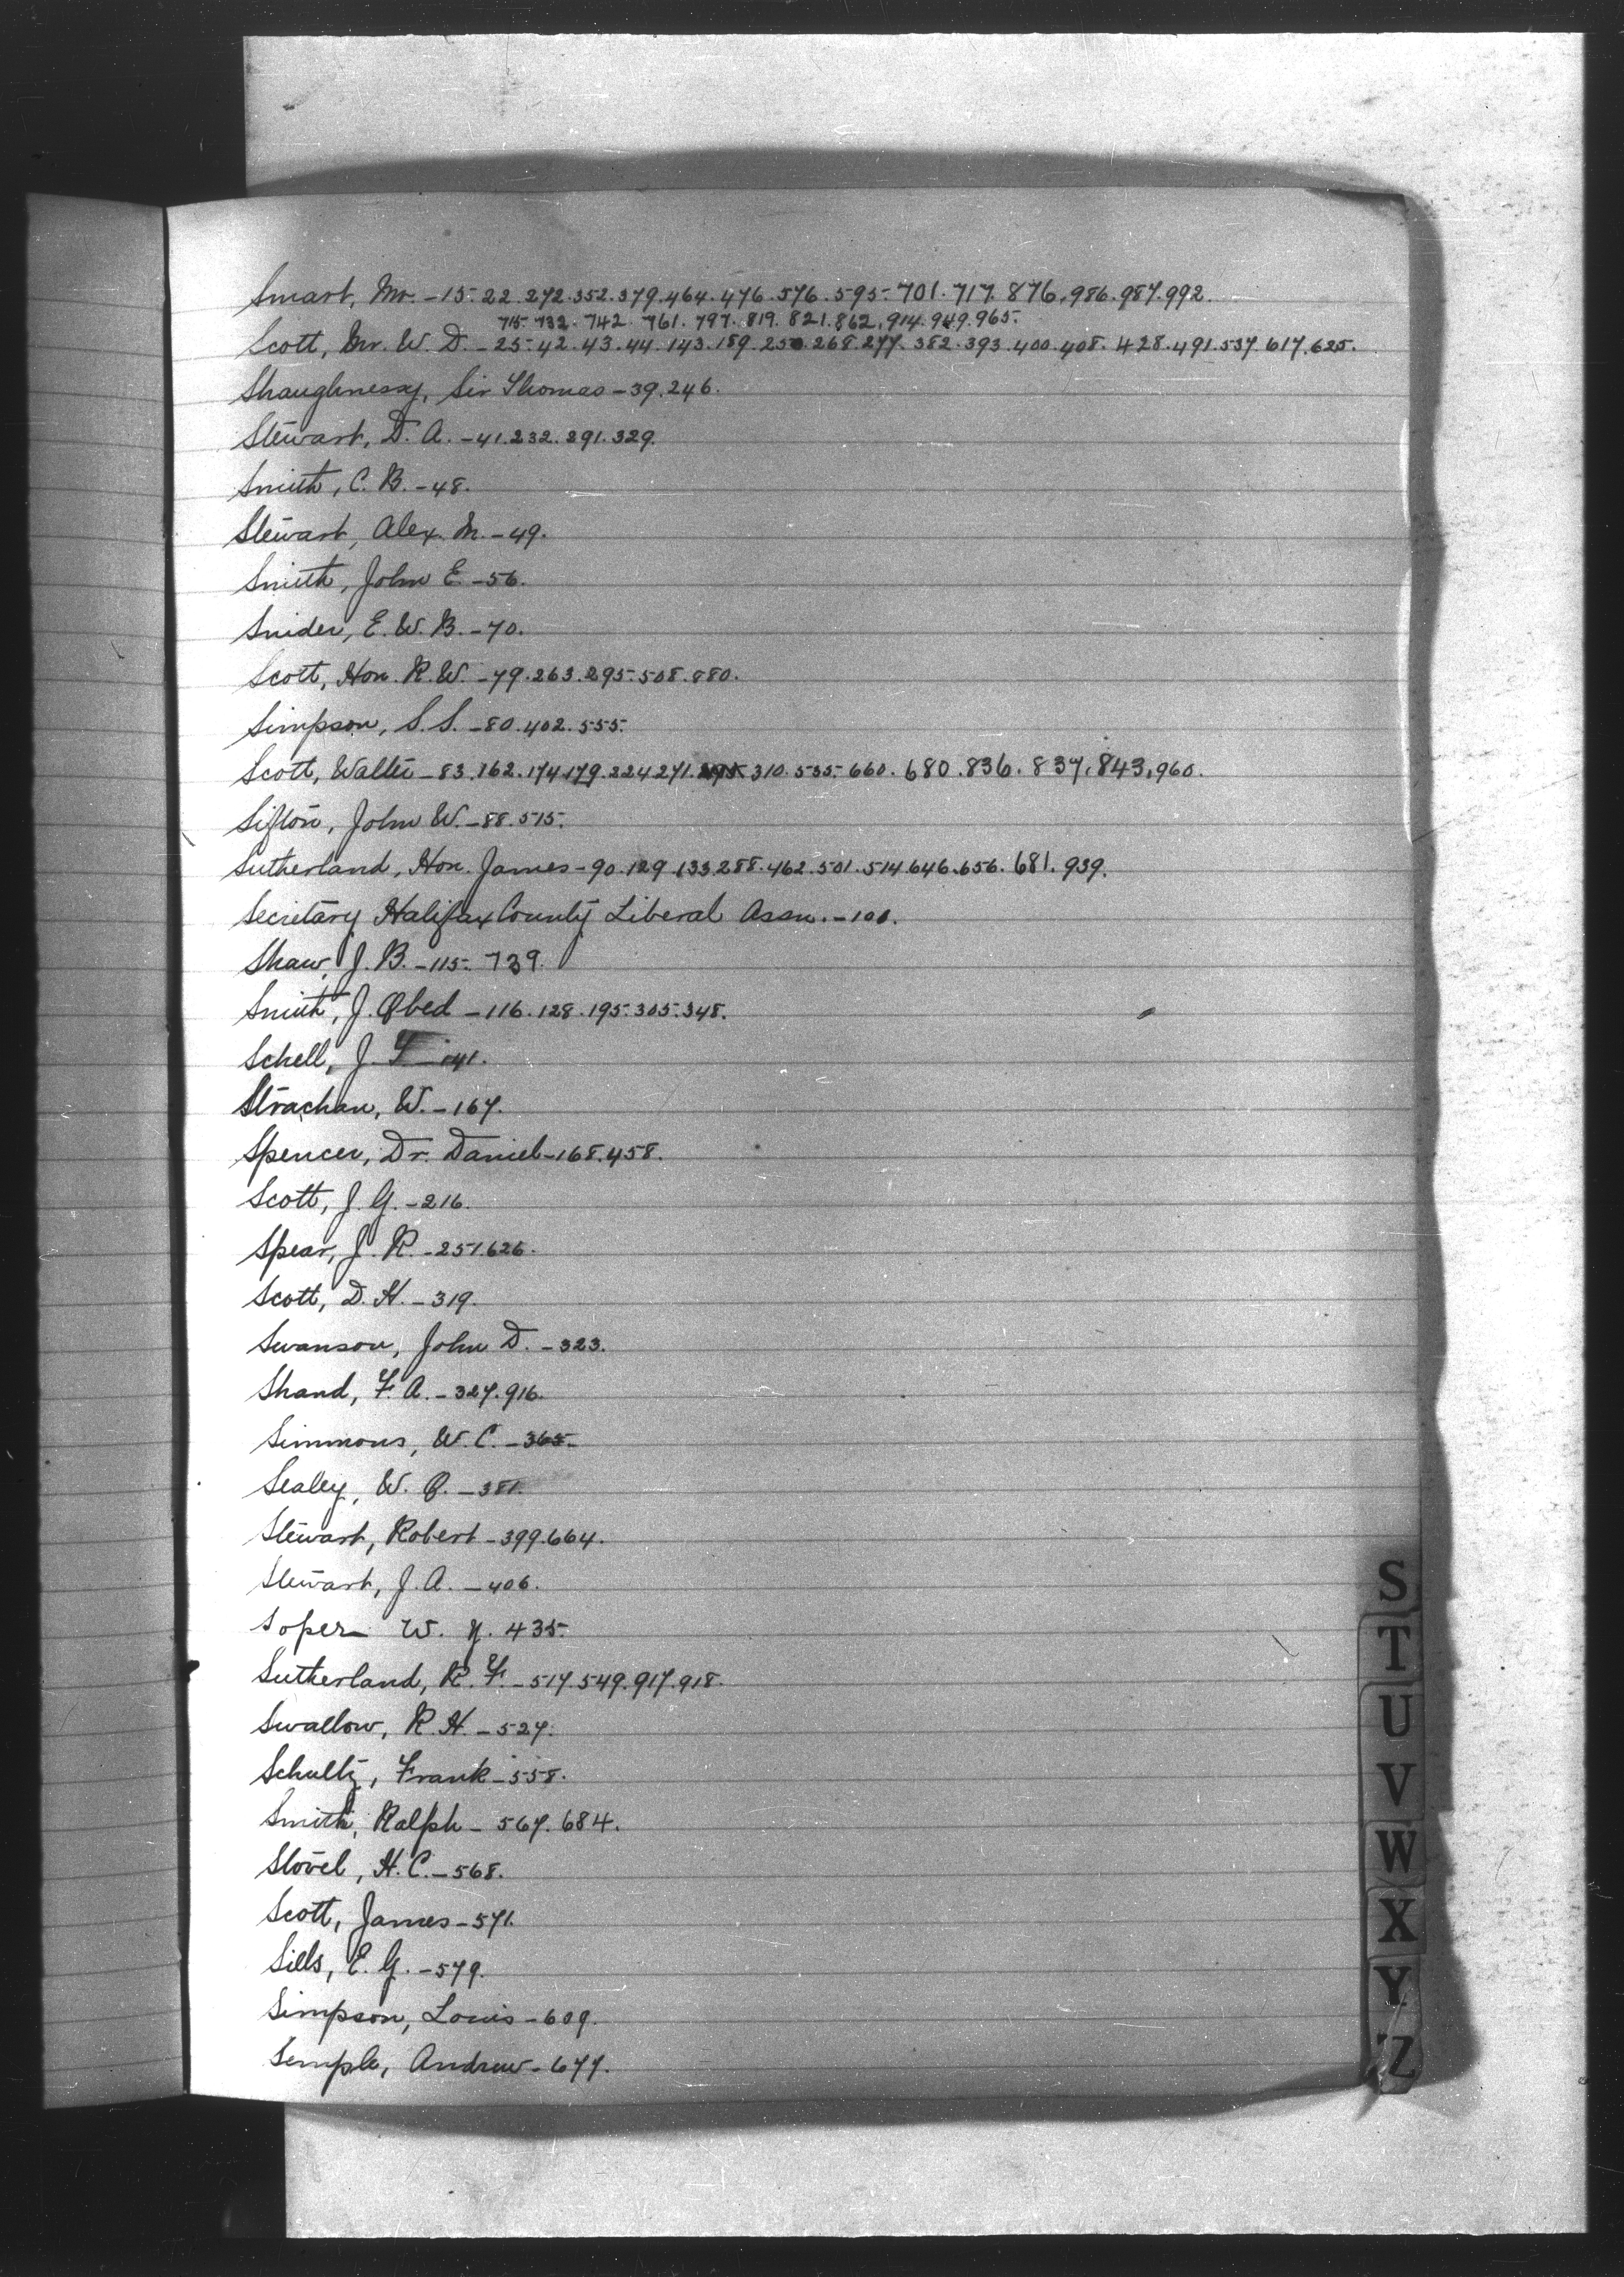 Smart, Mr. - 15. 22. 272. 352. 379. 464. 476. 576. 595. 701. 717. 876. 986. 987. 992.
715. 732. 742. 761. 797. 819. 821. 862. 914. 949. 965.
Scott, Mr. W. D. - 25. 42. 43. 44. 143. 189. 250. 268. 277. 382. 393. 400. 408. 428. 491. 537. 617. 625.
Shaughnessy, Sir Thomas - 39. 246.
Stewart, D. A. - 41. 232. 291. 329.
Smith, C. B. - 48.
Stewart, Alex. M. - 49.
Smith, John E. - 56.
Snider, E. W. B. - 70.
Scott, Hon. R. W. - 79. 263. 295. 508. 880.
Simpson, S. S. - 80. 402. 555.
Scott, Walter - 83. 162. 174. 179. 224. 271. 310. 535. 660. 680. 836. 837. 843. 960.
Sifton, John W. - 88. 515.
Sutherland, Hon. James - 90. 129. 133. 288. 462. 501. 514. 646. 656. 681. 939.
Secretary Halifax County Liberal Assn. - 100.
Shaw, J. B. - 115. 739.
Smith, J. Obed - 116. 128. 195. 305. 348.
Schell, J. T - 141.
Strachan, W. - 167.
Spencer, Dr. Daniel - 168. 458.
Scott, J. G. - 216.
Spear, J. R. - 251. 626.
Scott, D. H. - 319.
Swanson, John D. - 323.
Shand, F. A. - 327. 916.
Simmons, W. C. - 365.
Sealey, W. O. - 381.
Stewart, Robert - 399. 664.
Stewart, J. A. - 406.
Soper W. Y. 435.
Sutherland, R. F. - 517. 549. 917. 918.
Swallow, R. H. - 527.
Schultz, Frank - 558.
Smith, Ralph - 567. 684.
Stovel, H. C. - 568.
Scott, James - 571.
Sills, E. G. - 579.
Simpson, Louis - 609.
Semple, Andrew - 677.
S
T
U
V
W
X
Y
Z